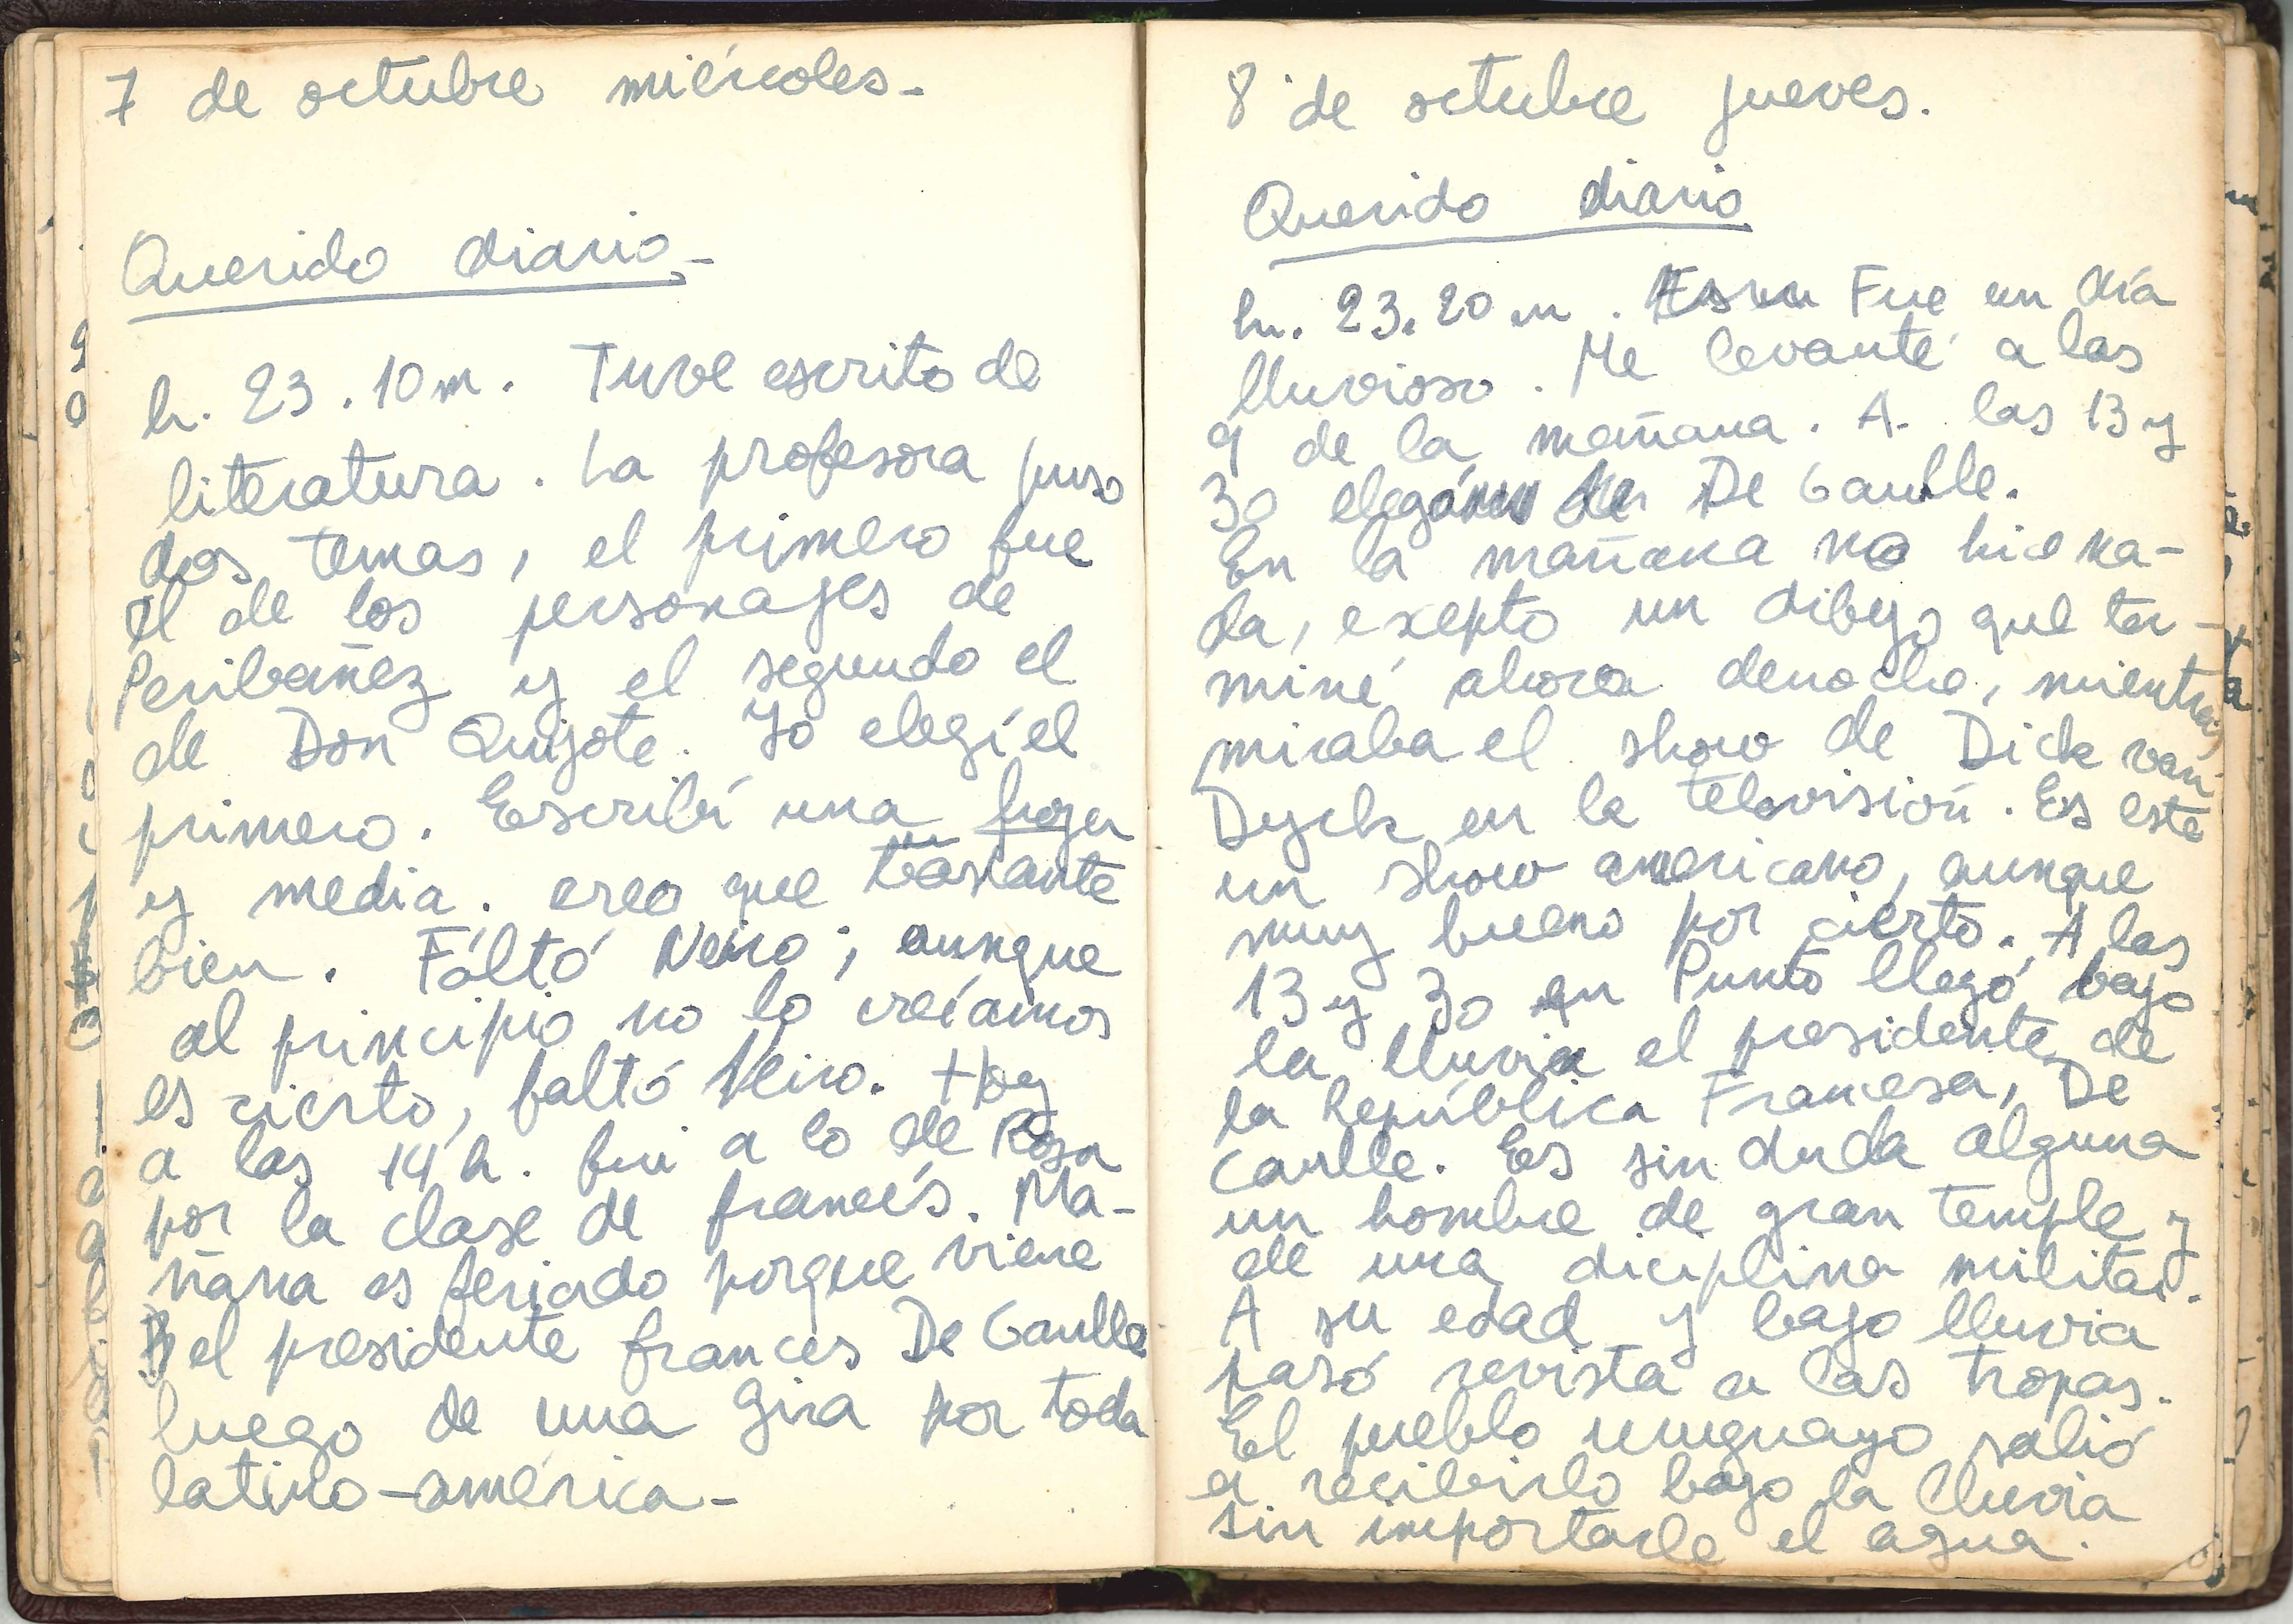 7 de octubre miércoles-
Querido diario-
h. 23.10m. Tuve escrito de
literatura. La profesora puso
dos temas, el primero fue
el de los personajes de
Peribañez y el segundo el
de Don Quijote. Yo elegí el
primero. Escribí una foja
y media. creo que bastante
bien. Faltó Neiro; aunque
al principio no lo creíamos
es cierto, faltó Neiro. Hoy
a las 14 h. fui a lo de Rosa
por la clase de francés. Ma-
ñana es feriado porque viene
el presidente frances De Gaulle
luego de una gira por toda
latino-américa-
8 de octubre jueves.
Querido diario
h. 23.20 m. Fue un día
lluvioso. Me levanté a las
9 de la mañana. A las 13 y
30 De Gaulle.
En la mañana no hice na-
da, exepto un dibujo que ter-
miné ahora denoche, mientras
miraba el show de Dick van
Dyck en la televisión. Es este
un show americano, aunque
muy bueno por cierto. A las
13 y 30 en Punto llegó bajo
la lluvia el presidente de
la República Francesa, De
Gaulle. Es sin duda alguna
un hombre de gran temple y
de una diciplina militar.
A su edad y bajo lluvia
pasó revista a las tropas.
El pueblo uruguayo salió
a recibirlo bajo la lluvia
sin importarle el agua.